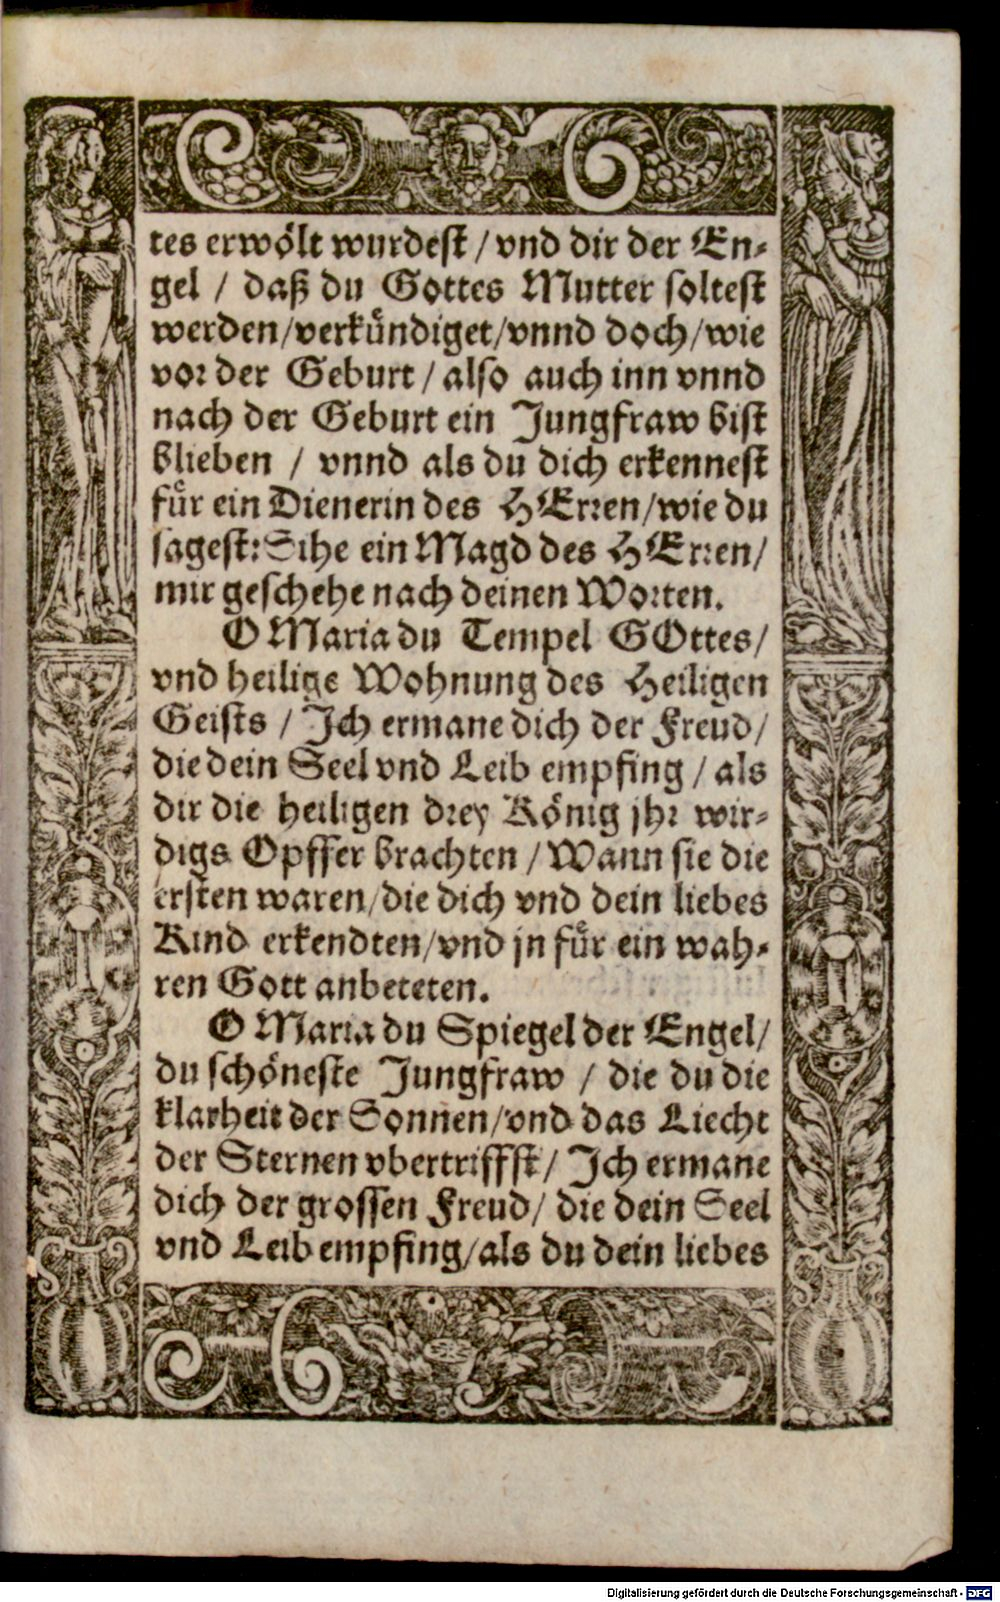 tes erwölt wurdest / vnd dir der En-
gel / daß du Gottes Mutter soltest
werden/verkündiget/vnnd doch/wie
vor der Geburt / also auch inn vnnd
nach der Geburt ein Jungfraw bist
blieben / vnnd als du dich erkennest
für ein Dienerin des HErren/wie du
sagest: Sihe ein Magd des HErren/
mir geschehe nach deinen Worten.
O Maria du Tempel GOttes/
vnd heilige Wohnung des Heiligen
Geists / Ich ermane dich der Freud/
die dein Seel vnd Leib empfing / als
dir die heiligen drey König jhr wir-
digs Opffer brachten / Wann sie die
ersten waren/die dich vnd dein liebes
Kind erkendten/vnd jn für ein wah-
ren Gott anbeteten.
O Maria du Spiegel der Engel/
du schöneste Jungfraw / die du die
klarheit der Sonnen/vnd das Liecht
der Sternen vbertriffst/ Ich ermane
dich der grossen Freud/ die dein Seel
vnd Leib empfing/als du dein liebes
Digitalisierung gefördert durch die Deutsche Forschungsgemeinschaft - DFG